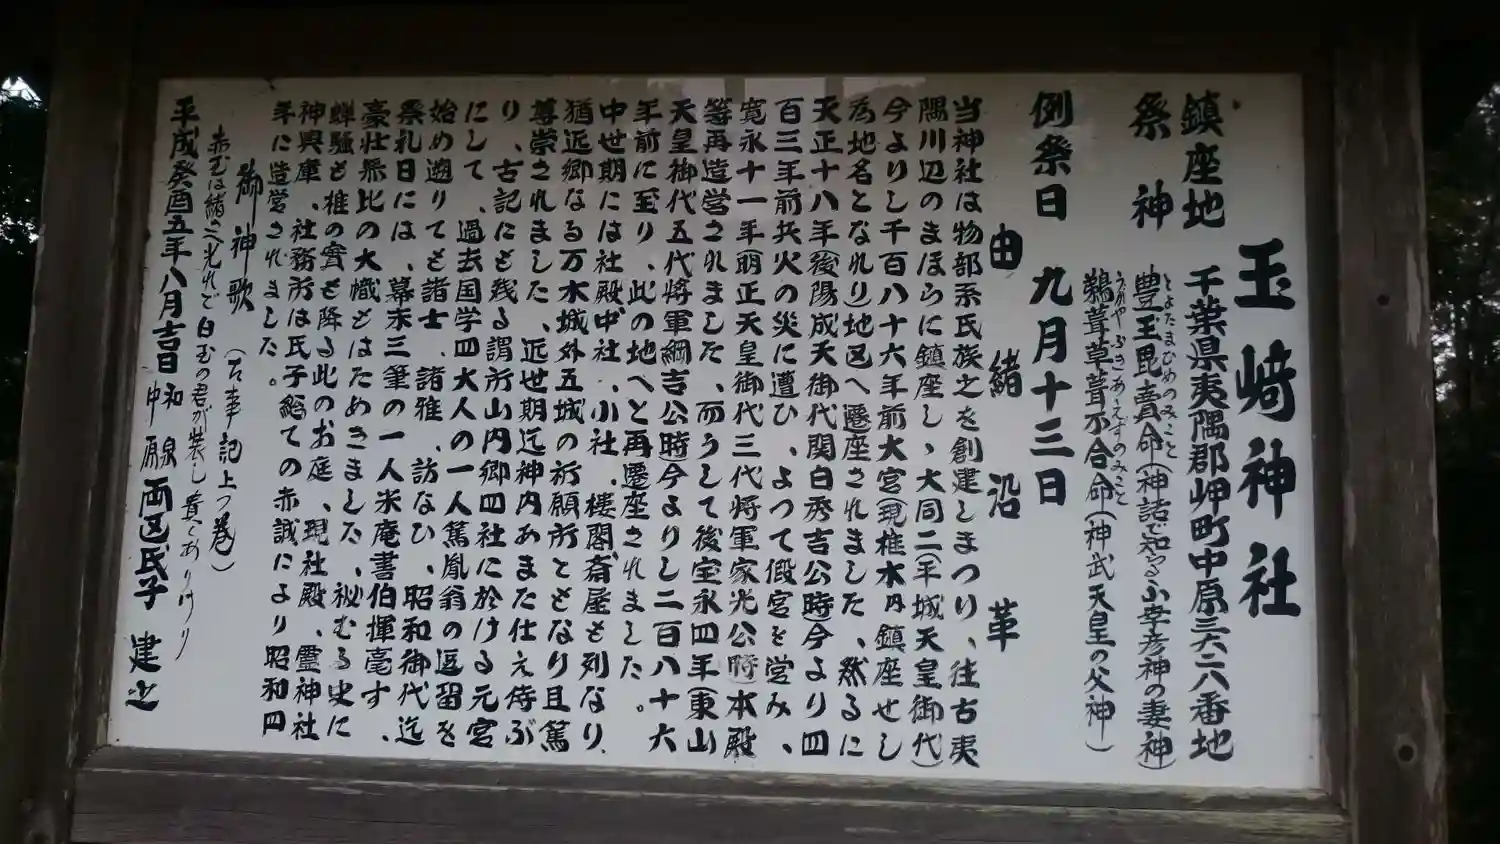 玉﨑神社
鎮座地 千葉県夷隅郡岬町中原三六二八番地
祭神 豊玉毘賣命(神話で知らるる小幸彦神の妻神)
とよたまひめのみこと
鵜葺草葺不合命(神武天皇の父神)
うがやぶきあえずのみこと
例祭日 九月十三日
由緒沿革
当神社は物部系氏族之を創建しまつり、往古夷
隅川辺のまほらに鎮座し、大同二(平城天皇御代)
今よりし千百八十六年前大宮(現椎木月鎮座せし
為地名となれり)地区へ遷座されました、然るに
天正十八年後陽成天御代関白秀吉公時今より四
百三年前兵火の災に遭ひ、よつて假宮を営み、
寛永十一年明正天皇御代三代将軍家光公時本殿
等再造営されました、而うして後宝永四年(東山
天皇御代五代将軍綱吉公時)今よりし二百八十六
年前に至り、此の地へと再遷座されました。
中世期には社殿中社、小社、楼閣斎屋も列なり、
猶近郷なる万木城外五城の祈願所ともなり且篤
尊崇されました、近世期迄神内あまた仕え侍ぶ
り、古記にも残る謂所山内郷四社に於ける元宮
にして、過去国学四大人の一人篤胤翁の逗留を
始め遡りても諸士、諸雅、訪なひ、昭和御代迄
祭礼日には、幕末三筆の一人米庵書伯揮毫す、
豪壮無比の大幟もはためきました、秘むる史に
蝉騒も椎の實も降る此のお庭、現社殿、霊神社
神輿庫、社務所は氏子総ての赤誠により昭和四
年に造営されました。
御神歌 (古事記上つ巻)
赤玉は緒さへ光れど白玉の君が装し貴くありけり
平成癸酉五年八月吉日 和泉 中原 両区氏子 建之